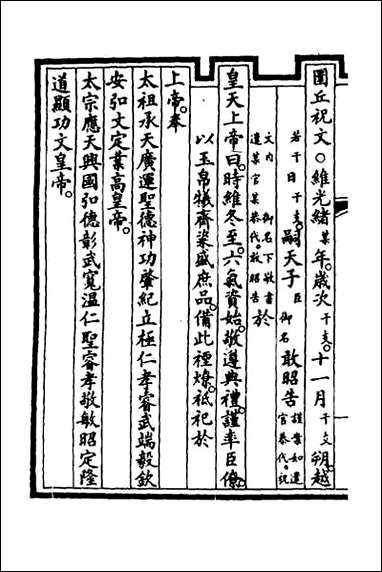 圜丘祝文○維光緒某年歲次干支十一月干支朔越
若干日干支嗣天子臣御名敢昭告謹案如遣官恭代祝
文內御名下敬書遣某官某恭代敢昭告於
皇天上帝曰時維冬至六氣資始敬遵典禮謹率臣僚
以玉帛犧齊粢盛庶品備此禋燎祗祀於
上帝奉
太祖承天廣運聖德神功肇紀立極仁孝睿武端毅欽
安弘文定業高皇帝
太宗應天興國弘德彰武寬溫仁聖睿孝敬敏昭定隆
道顯功文皇帝